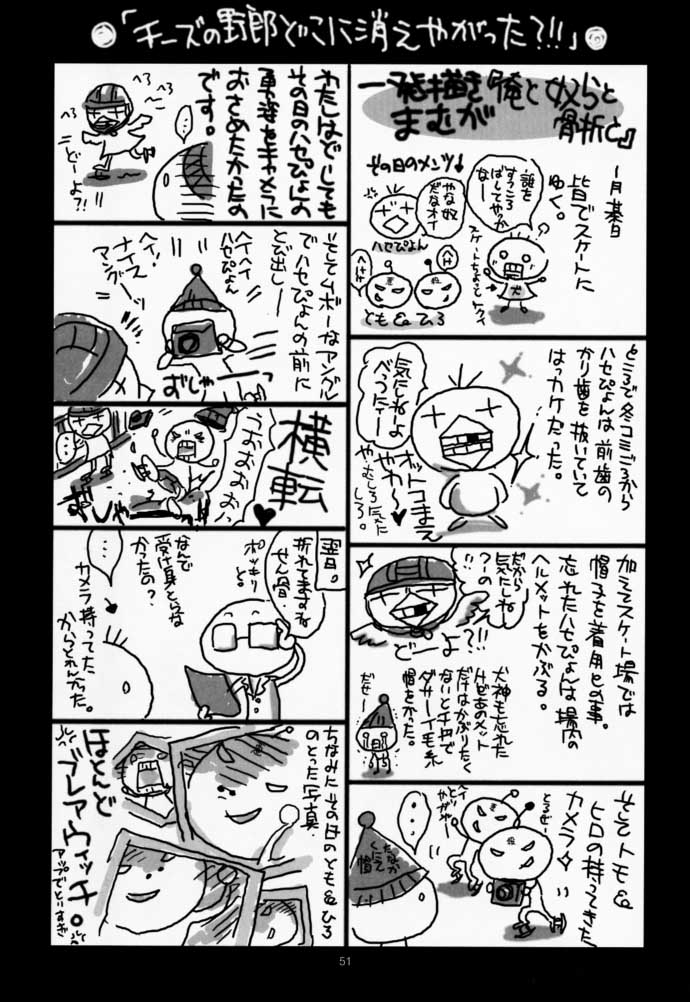 「チーズの野郎どこに消えやがった?!!」
一発描き『俺と奴らと
まむが 骨折と』
1月某日
皆でスケートに
ゆく。
誰を
すっころ
ばしてやっか
なー
やな奴
だなオイ
その日のメンツ↓
ハセぴょん
スケートちょっとトクイ
犬
悪
へけけ
とも&ひろ
ところで冬コミごろから
ハセぴょんは前歯の
かり歯を抜いていて
はっカケだった。
気にしねーよ
べっつにィー
オットコまえ
やや〜♥
や、むしろ気に
しろ。
加えてスケート場では
帽子を着用との事。
忘れたハセぴょんは場内の
ヘルメットもかぶる。
だから
気にしね
っつーの
どーよ?!!
犬神も忘れた
けどあのメット
だけはかぶりたく
ないと千円で
ダサーイ毛糸
帽をかった。
だせー
そしてトモ&
ヒロの持ってきた
カメラ✧
とるぜー
・・・
わたしはどーしても
その日のハセぴょんの
勇姿をキャメラに
おさめたかったの
です。
へろ
へろ
どーよ?!!
・・・
そしてムボーなアングル
でハセぴょんの前に
とび出しー
ヘイヘイ
ハセぴょん
ヘイ!
ナイス
アングーッ
おじゃーーっ
横転
うおおおおい
・・・
翌日。
折れてますね
せん骨
ポッキリ
と。
なんで
受け身とらな
かったの?
・・・
カメラ持ってた
からとれんかった。
ちなみにその日のとも&ひろ
のとった写真
ほとんど
ブレアウィッチ。
アップでとりすぎ
51